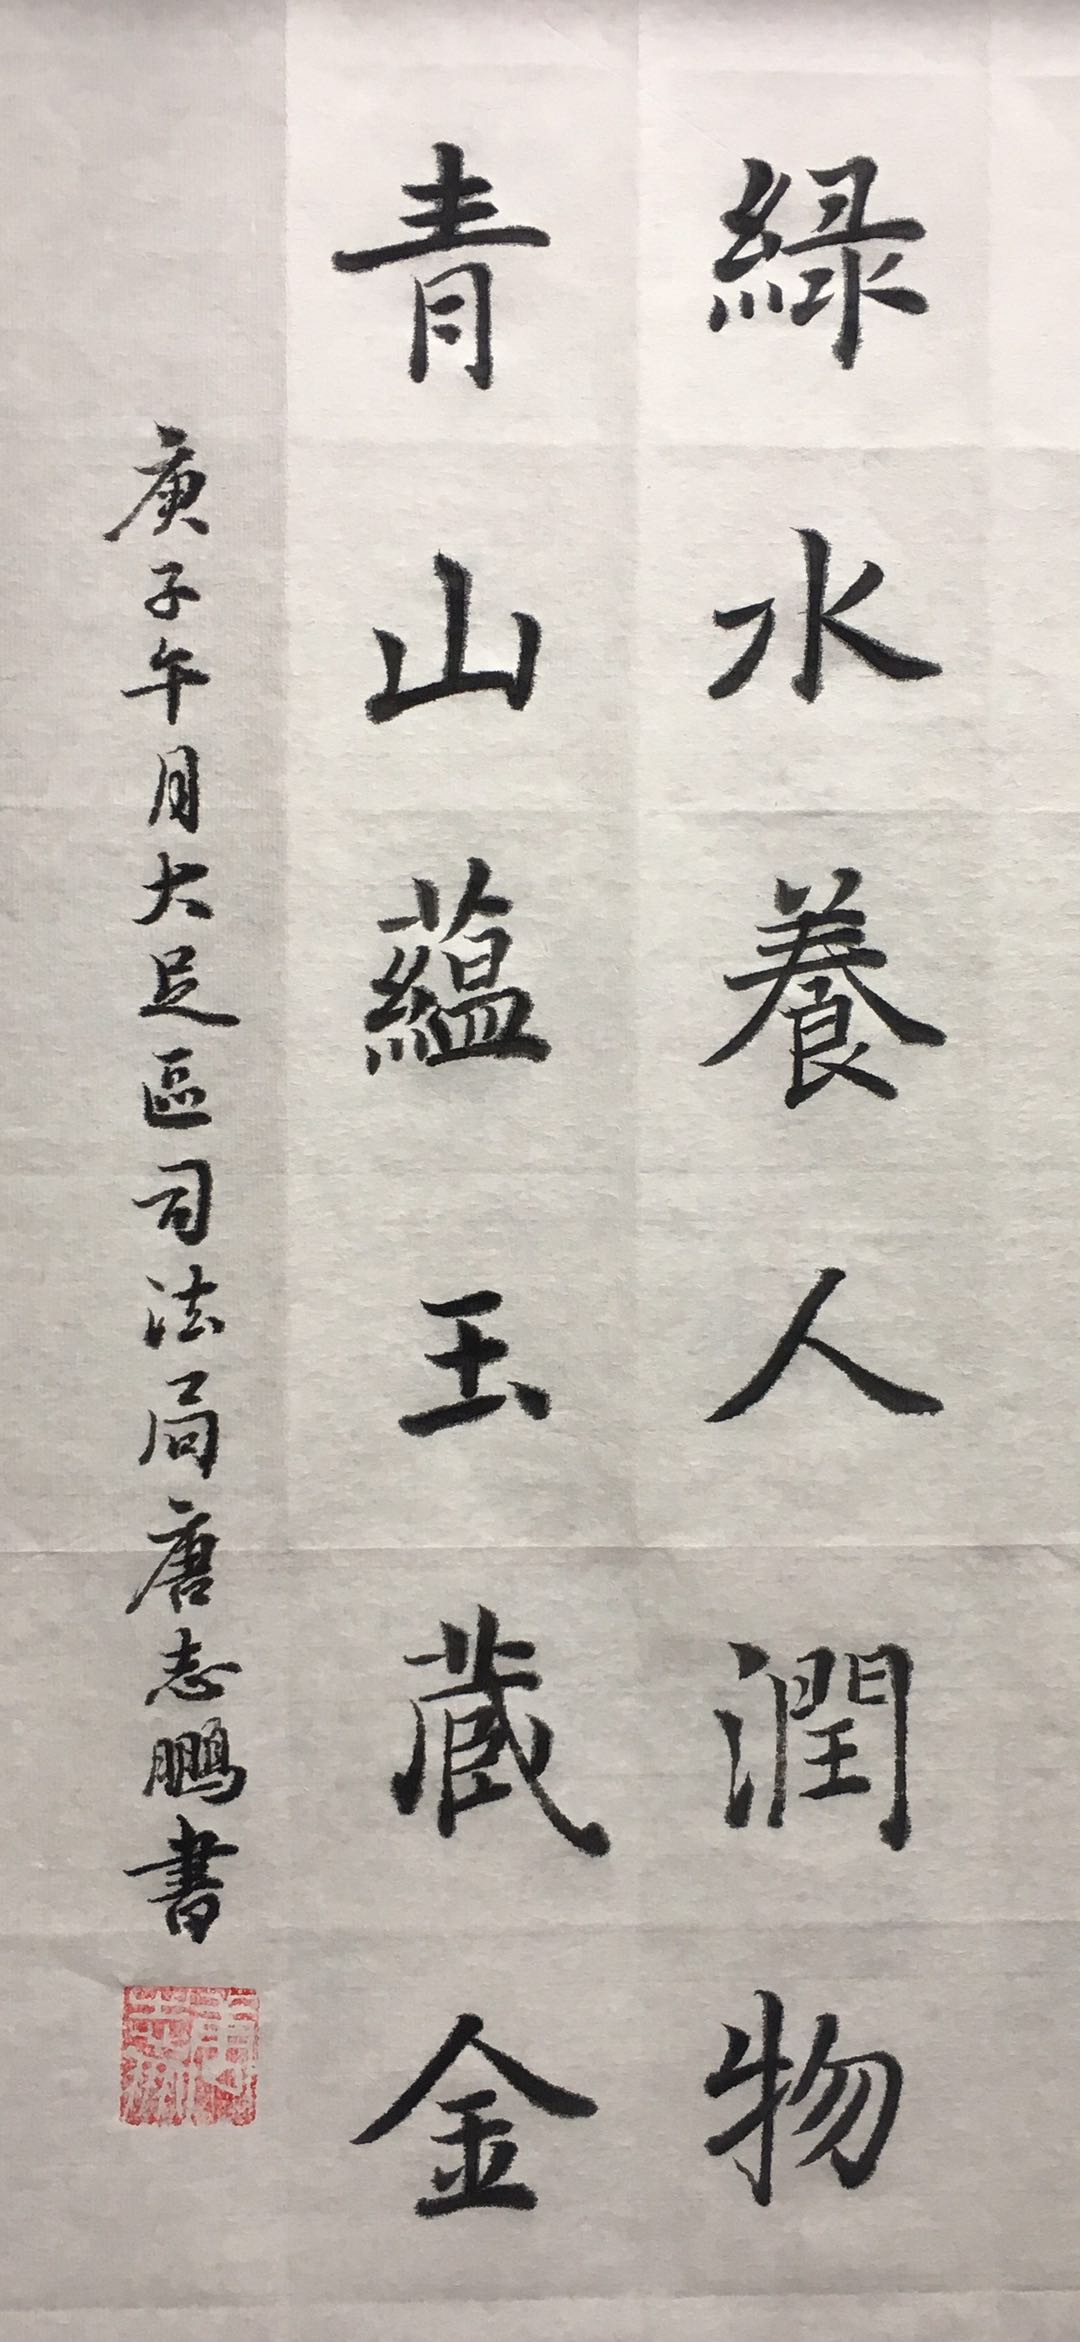 緑水養人潤物
青山蘊玉蔵金
庚子午月大足區司法局唐志鵬書